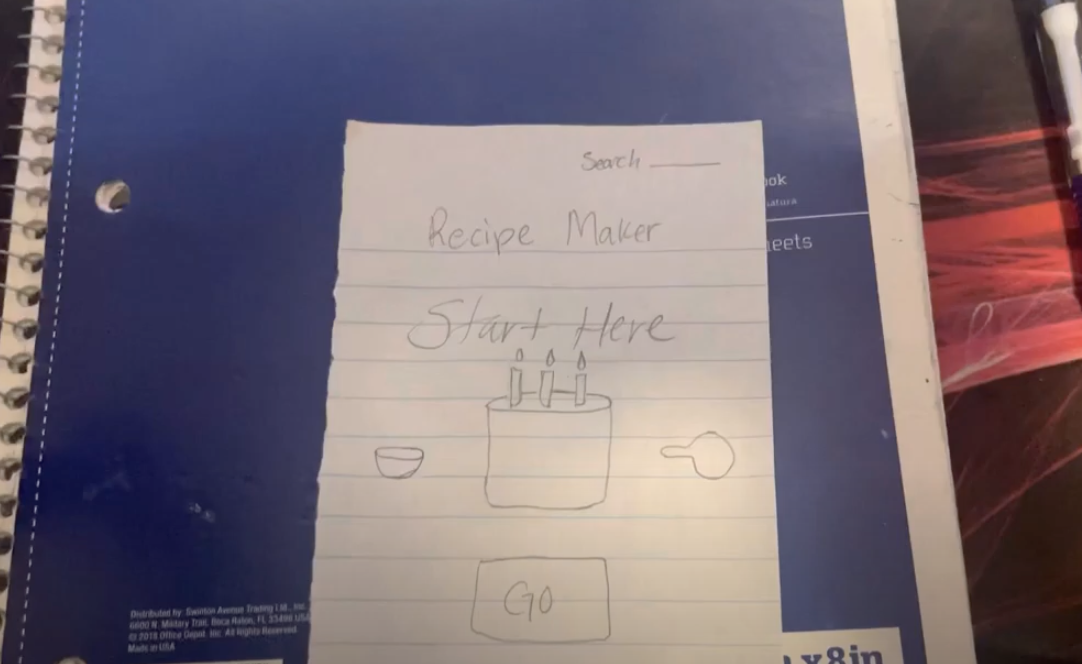 Search
ok
atura
Recipe Maker
eets
Start Here
GO
Distributed by: Swinton Avenue Trading Ltd., Inc.
6600 N. Military Trail, Boca Raton, FL 33496 USA
© 2018 Office Depot, Inc. All Rights Reserved.
Made in USA
x8in